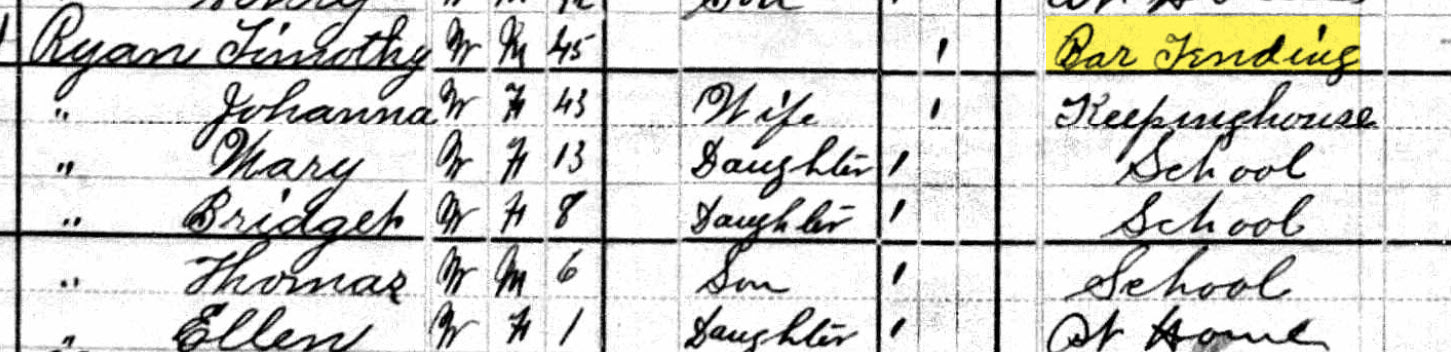 Son
Ryan Timothy W M 45 1 Bar Tending
" Johanna W F 43 Wife 1 Keepinghouse
" Mary W F 13 Daughter 1 School
" Bridget W F 8 Daughter 1 School
" Thomas W M 6 Son 1 School
" Ellen W F 1 Daughter 1 At Home